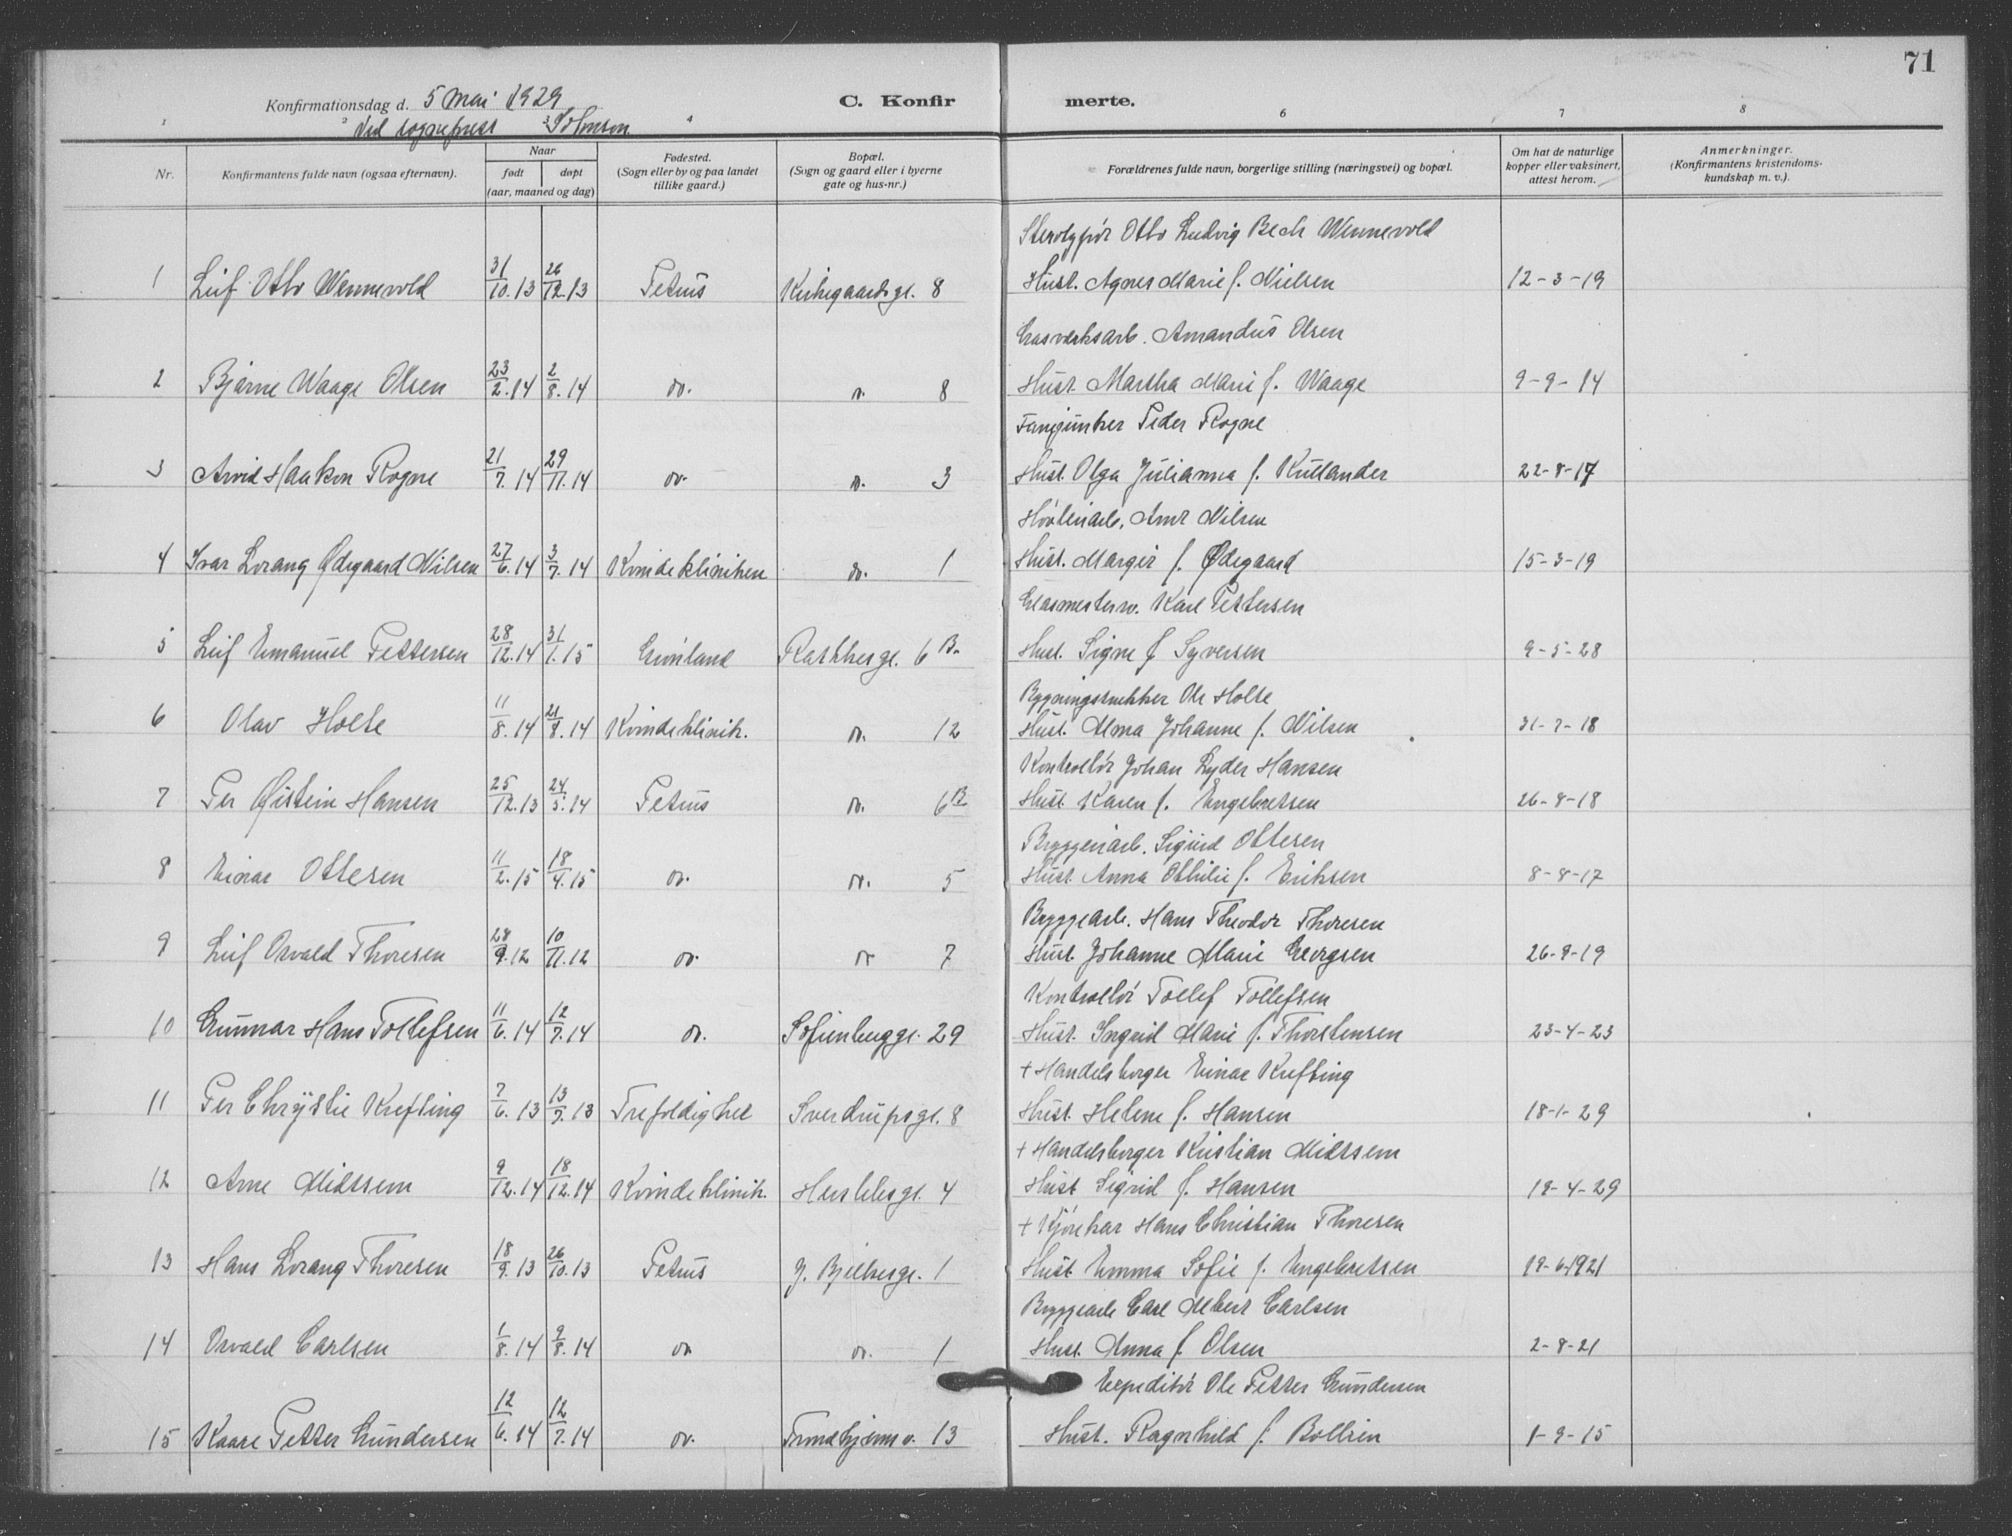 71
Konfirmationsdag d. 5 Mai 1929 C. Konfir merte.
Ved sogneprest Johnson
1 2 3 4 6 7 8
Nr. Konfirmantens fulde navn (ogsaa efternavn). Naar født døpt (aar, maaned og dag) Fødested. (Sogn eller by og paa landet tillike gaard.) Bopæl. (Sogn og gaard eller i byerne gate og hus-nr.) Forældrenes fulde navn, borgerlige stilling (næringsvei) og bopæl. Om hat de naturlige kopper eller vaksinert, attest herom. Anmerkninger. (Konfirmantens kristendoms-kundskap m. v.).
Otto Ludvig Bech Wennevold
1 Leif Otto Wennevold 31/10.13 26/12.13 Petrus Kirkegaardsgt. 8 Hust. Agnes Marie f. Nielsen 12-3-19
Gasværksarb. Amandus Olsen
2 Bjarne Waage Olsen 23/2.14 2/8.14 do. do. 8 Hust. Martha Marie f. Waage 9-9-14
Fanejunker Peder Rogne
3 Arvid Haakon Rogne 21/7.14 29/11.14 do. do. 3 Hust. Olga Julianna f. Kullander 22-8-17
Høvleriarb. Arnt Nilsen
4 Ivar Lorang Ødegaard Nilsen 27/6.14 3/7.14 Kvindekliniken do. 1 Hust. Margit f. Ødegaard 15-3-19
Glasmestersv. Karl Pettersen
5 Leif Emanuel Pettersen 28/12.14 31/1.15 Grønland Rathkesgt. 6 B. Hust. Signe f. Syversen 9-5-28
Bygningssnekker Ole Holte
6 Olav Holte 11/8.14 21/8.14 Kvindeklinik. do. 12 Hust. Alma Johanne f. Nilsen 31-7-18
Kontrollør Johan Lyder Hansen
7 Per Øistein Hansen 25/12.13 24/5.14 Petrus do. 6B Hust. Karen f. Engebretsen 26-8-18
Bryggeriarb. Sigurd Ottesen
8 Einar Ottesen 11/2.15 18/4.15 do. do. 5 Hust. Anna Othilie f. Eriksen 8-8-17
Bryggearb. Hans Theodor Thoresen
9 Leif Osvald Thoresen 28/9.12 10/11.12 do. do 7 Hust. Johanne Marie Georgsen 26-9-19
Kontrollør Tollef Tollefsen
10 Gunnar Hans Tollefsen 11/6.14 12/7.14 do. Sofienberggt. 29 Hust. Ingrid Marie f. Thorstensen 23-4-23
+ Handelsborger Einar Krefting
11 Per Chrystie Krefting 7/6.13 13/9.13 Trefoldighet Sverdrupsgt. 8 Hust. Helene f. Hansen 18-1-29
+ Handelsborger Kristian Midtsem
12 Arne Midtsem 9/12.14 18/12.14 Kvindeklinik. Herslebsgt. 4 Hust Sigrid f. Hansen 18-4-29
+ Kjørekar Hans Christian Thoresen
13 Hans Lorang Thoresen 18/9.13 26/10.13 Petrus J. Bjelkesgt. 1 Hust Emma Sofie f. Engebretsen 18-6-1921
Bryggearb Carl Albert Carlsen
14 Osvald Carlsen 1/8.14 9/8.14 do do. 1 Hust. Anna f. Olsen 2-8-21
Expeditør Ole Petter Gundersen
15 Kaare Petter Gundersen 12/6.14 12/7.14 do. Trondhjemsv. 13 Hust. Ragnhild f. 1-9-15